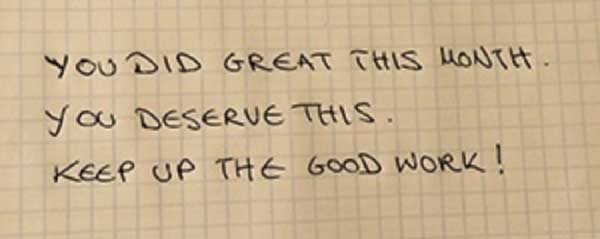 YOU DID GREAT THIS MONTH.
YOU DESERVE THIS.
KEEP UP THE GOOD WORK!